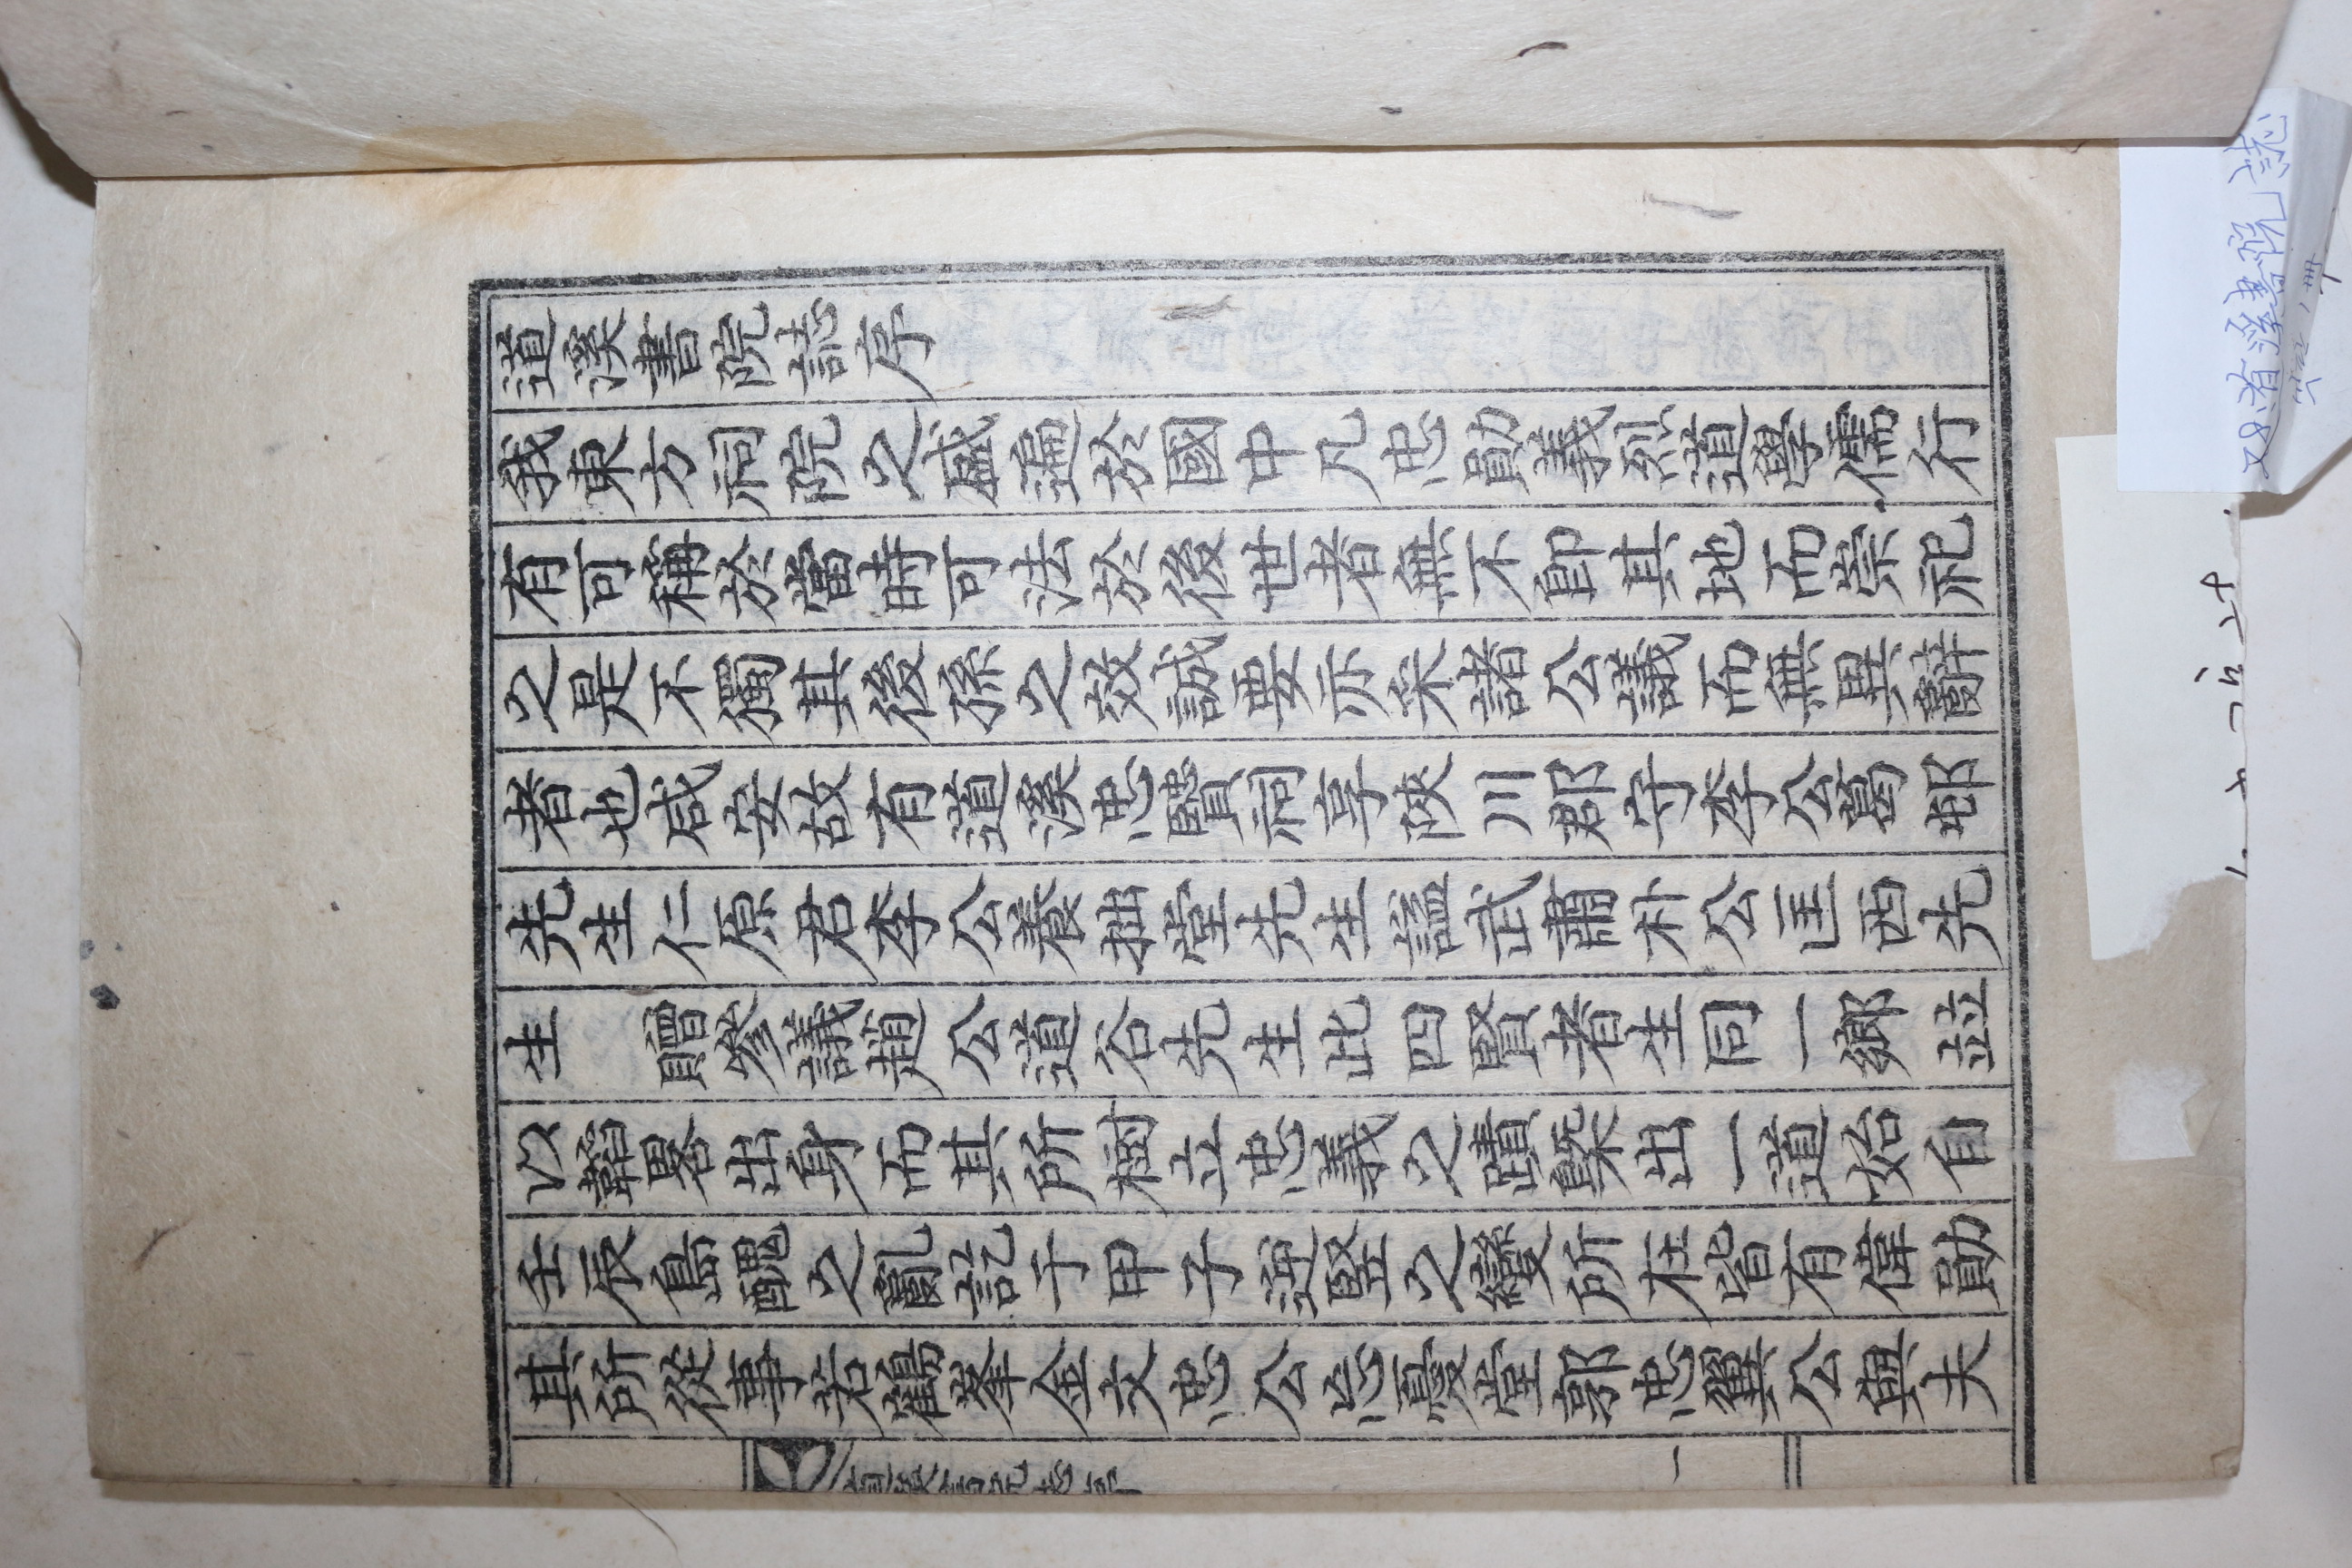 道溪書院誌序
我東方祠院之盛遍於國中凡忠勳義烈道學儒行
有可稱於當時可法於後世者無不卽其地而崇祀
之是不獨其後孫之效誠要亦采諸公議而無異辭
者也咸安故有道溪忠賢祠享陜川郡守李公葛邨
先生仁原君李公養拙堂先生諡武肅朴公匡西先
生 贈參議趙公道谷先生此四賢者生同一鄕竝
以韜畧出身而其所樹立忠義之蹟槩出一道始自
壬辰島醜之亂訖于甲子逆竪之變所在皆有偉勳
其所從事若鶴峯金文忠公忘憂堂郭忠翼公與夫
道溪書院誌序 一